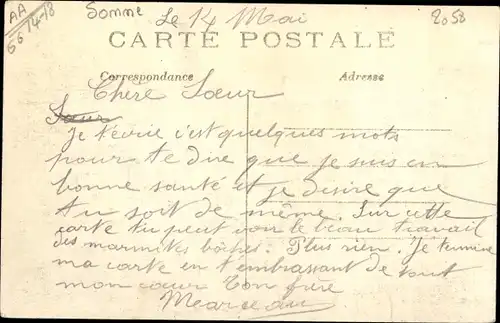 AA
66 14-18
Somme
Le 14 Mai
2058
CARTE POSTALE
Correspondance
Adresse
Chère Sœur
Sœur
Je t'écrie c'est quelques mots
pour te dire que je suis en
bonne santé et je désire que
tu soit de même. Sur cette
carte tu peut voir le beau travail
des marmites bôches. Plus rien. Je termine
ma carte en t'embrassant de tout
mon cœur Ton frère
Marceau